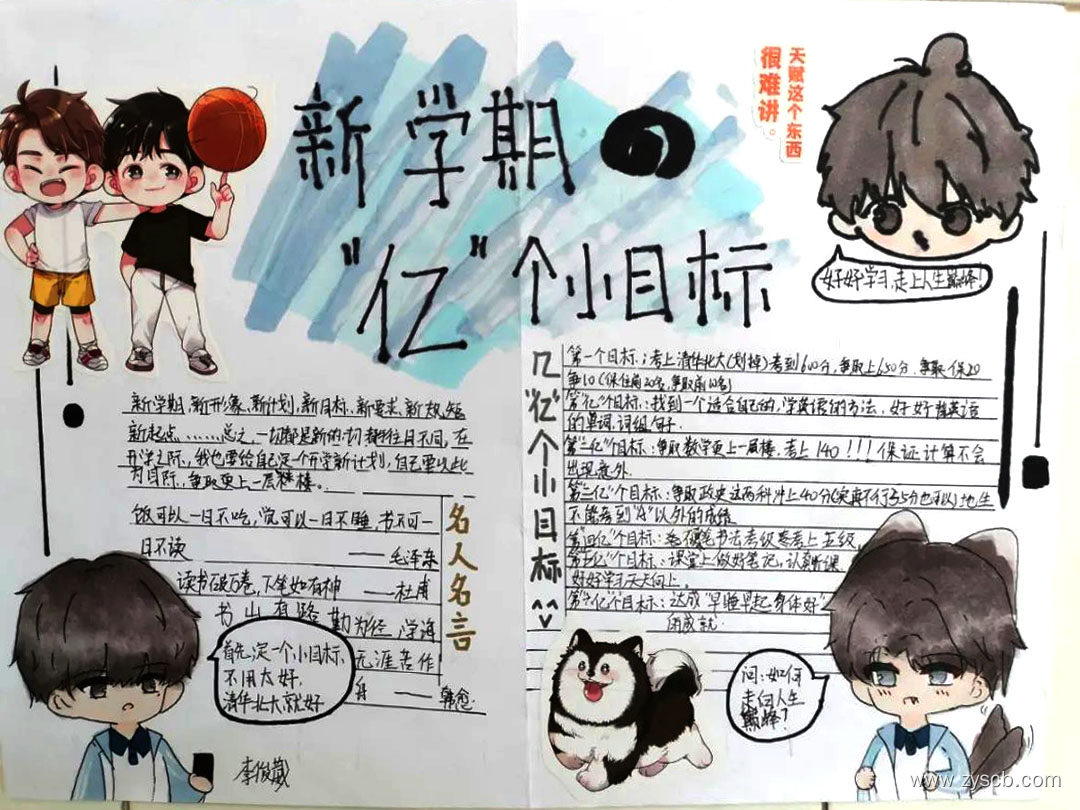 新学期の
"亿"个小目标
很难讲。
天赋这个东西
好好学习,走上人生巅峰!
新学期,新形象、新计划、新目标、新要求、新
新起点………总之,一切都是新的,一切都往日不同,在
开学之际,我也要给自己定一个开学新计划,自己要以此
为目际,争取更上一层楼。
名人名言
饭可以一日不吃,觉可以一日不睡,书不可一
日不读 ——毛泽东
读书破万卷,下笔如有神 ——杜甫
书山有路勤为径,学海
无涯苦作
舟 ——韩愈
几"亿"个小目标
第一个目标:考上清华北大(划掉)考到600分,争取上650分、争取保20
争10(保住前20名,争取前10名)
第"亿"个目标:找到一个适合自己的,学英语的方法、好好背英语
的单词,词组,句子.
第二"亿"个目标:争取数学更上一层楼,考上140!!!保证计算不会
出现意外.
第三"亿"个目标:争取政史这两科冲上40分(实再不行35分也可以)地生
不能考到"A"以外的成绩
第四"亿"个目标:硬笔书法考级要考上五级.
第五"亿"个目标:课堂上做好笔记,认真听课
好好学习天天向上.
第六"亿"个目标:达成"早睡早起身体好"
的成就.
首先,定一个小目标,
不用太好,
清华北大就好
问:如何
走向人生
巅峰?
www.zyscb.com